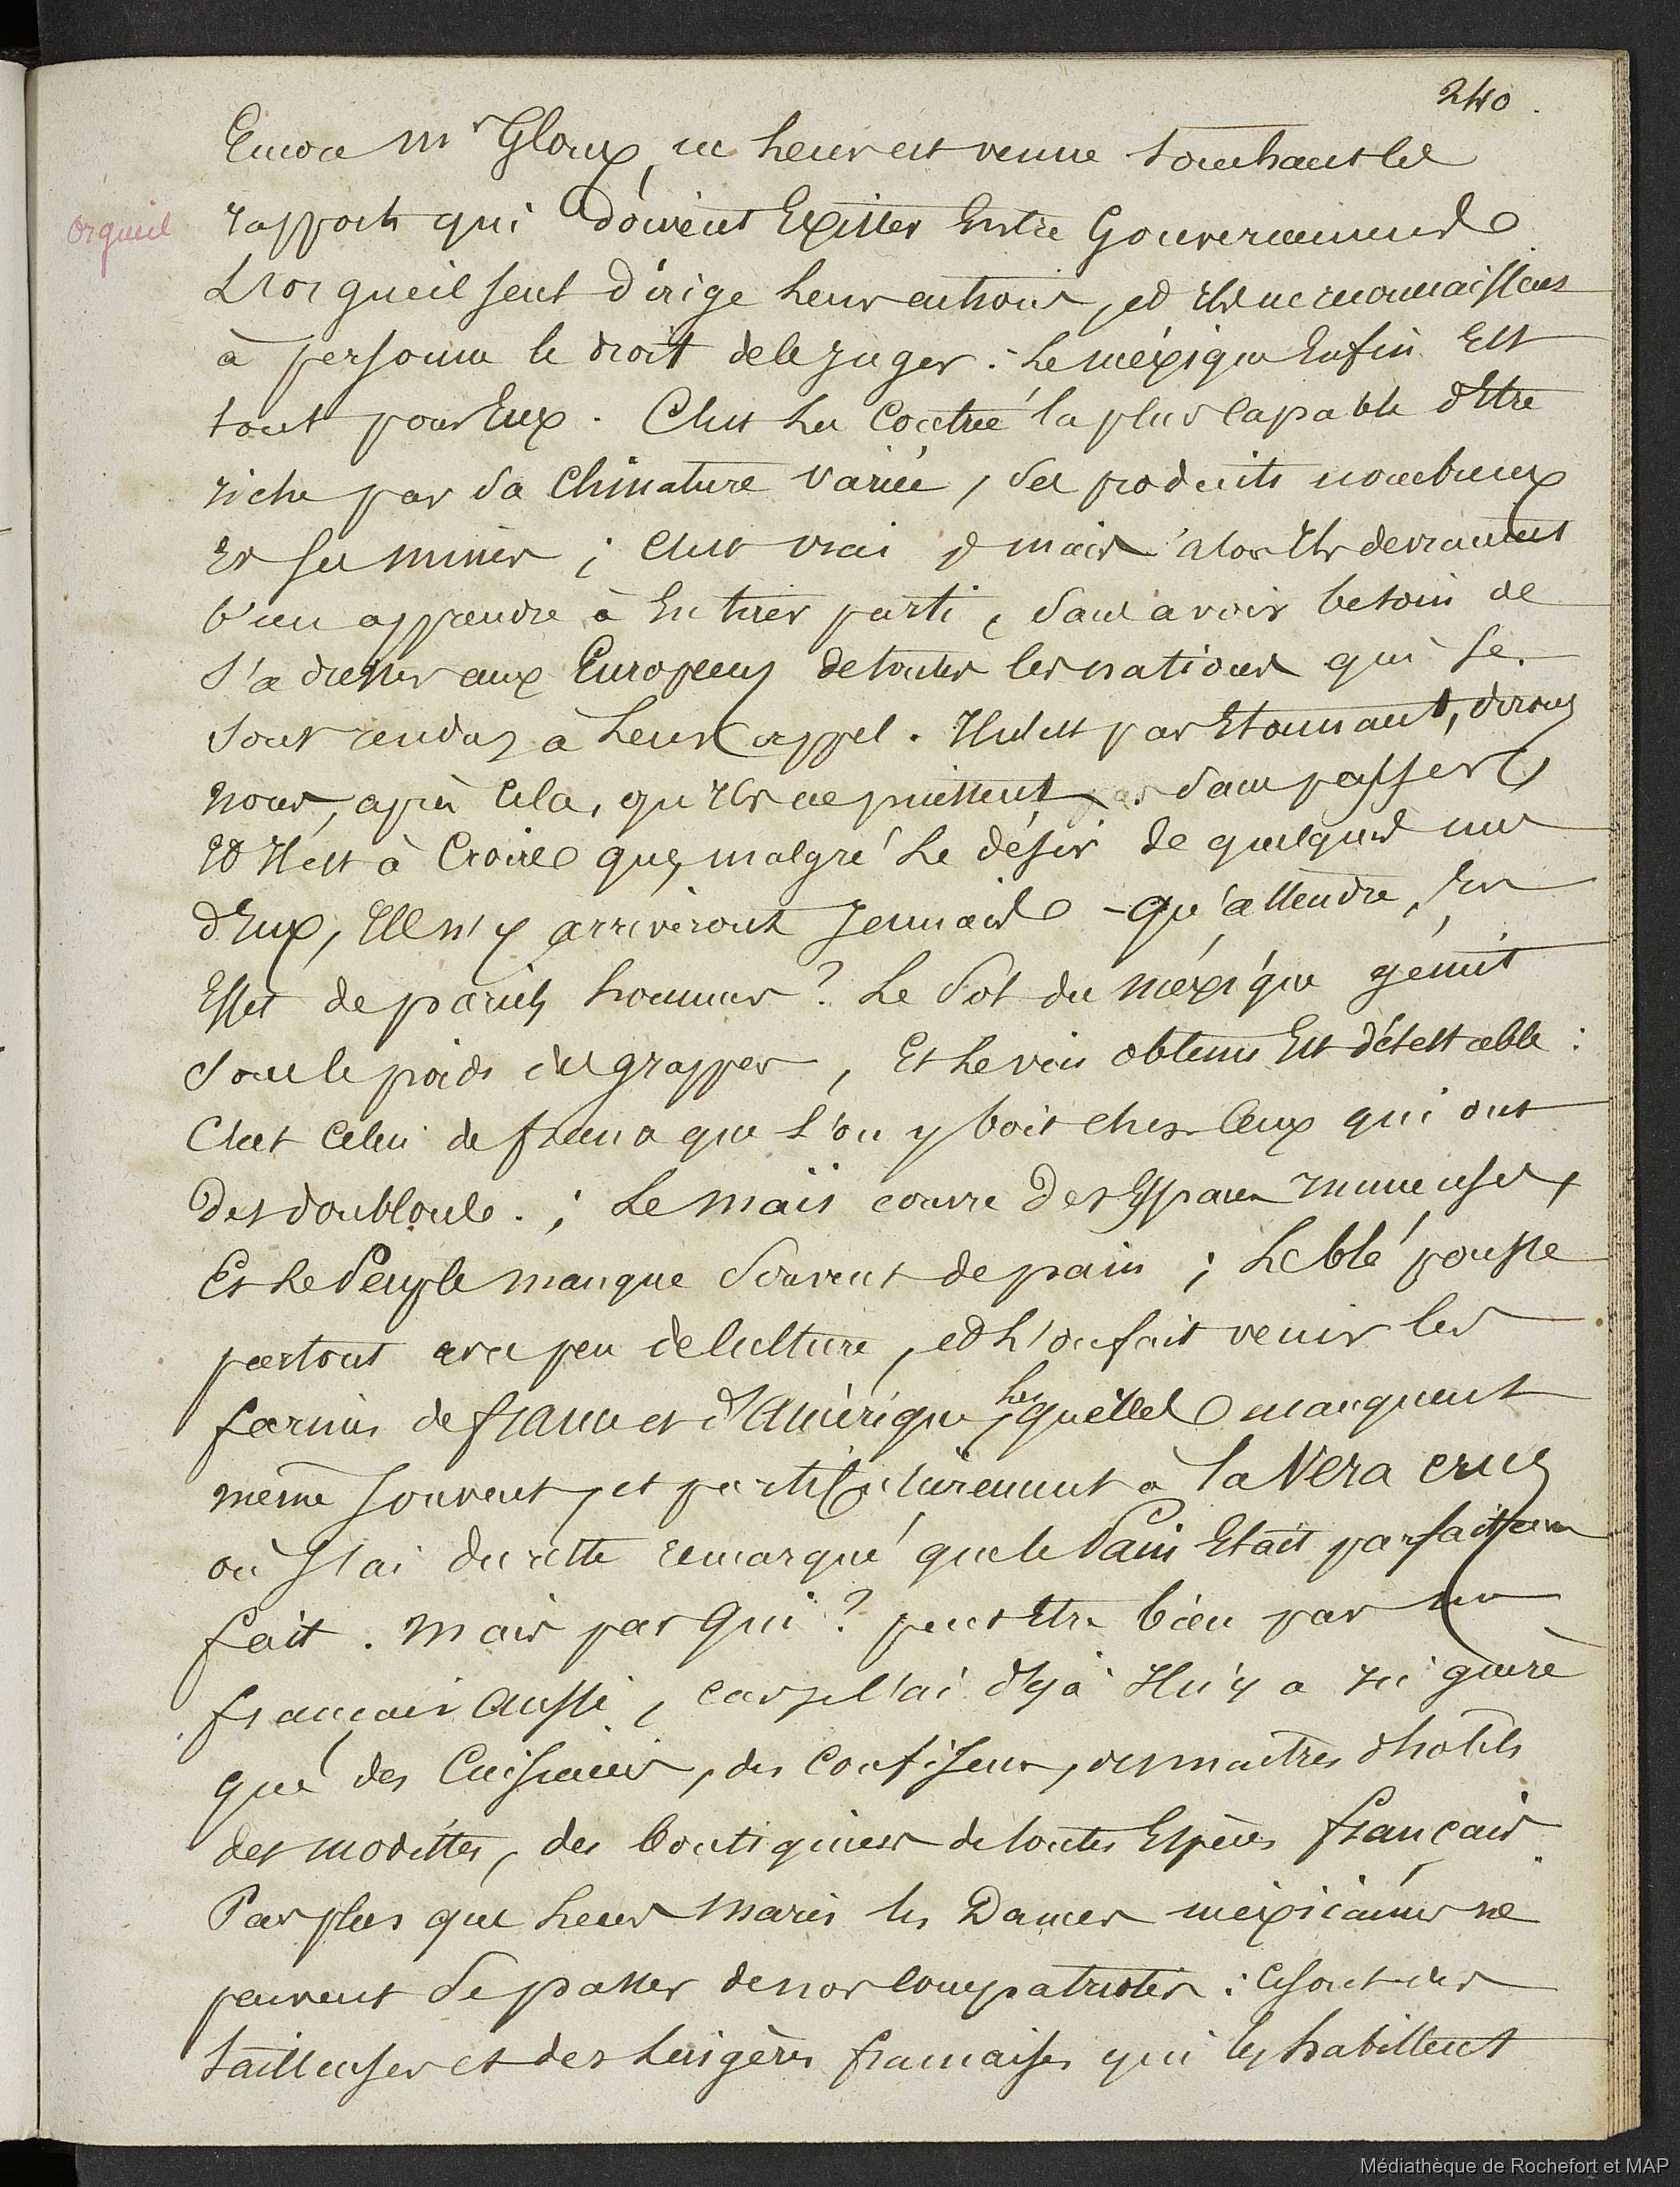 240.
Encore Mr Gloux, ne leur est venue touchant les
orgueil
rapports qui doivent Exister Entre Gouvernements
L'orgueil seul dirige leurs actions, et Ils ne reconnaissent
à personne le droit de le juger : le méxique Enfin Est
tout pour Eux. C'est la Contrée la plus capable d'Etre
riche par sa Climature variée, ses produits nombreux
Et ses mines ; c'est vrai mais alors Ils devraient
bien apprendre à En tirer parti, sans avoir besoin de
s'adresser aux Européens de toutes les nations qui se
sont rendus à leur appel. Il n'est pas Etonnant, dirons
nous, après cela, qu'Ils ne puissent s'en passer,
Et Il est à Croire que, malgré le désir de quelques uns
d'Eux, Ils n'y arriveront Jamais - qu'attendre, En
Effet de pareils hommes ? Le Sol du méxique gémit
sous le poids des grappes, Et le vin obtenu Est détestable :
C'est celui de france que l'on y boit chez Ceux qui ont
des doublons. ; Le Maïs couvre des Espaces Immenses,
Et le Peuple manque souvent de pain ; Le blé pousse
partout avec peu de culture, et l'on fait venir les
farines de france et d'Amérique, lesquelles manquent
même souvent, et particulièrement à la Vera cruz
où J'ai du reste remarqué que le Pain Etait parfaitem
fait. Mais par Qui ? peut Etre bien par un
français aussi, car je l'ai déjà Il n'y a ici guère
que des Cuisiniers, des Confiseurs, des maitres d'hotels
des modistes, des boutiquiers de toutes Espèces français.
Pas plus que leurs Maris les Dames méxicaines ne
peuvent se passer de nos Compatriotes : ce sont des
tailleuses et des lingères francaises qui les habillent
Médiathèque de Rochefort et MAP